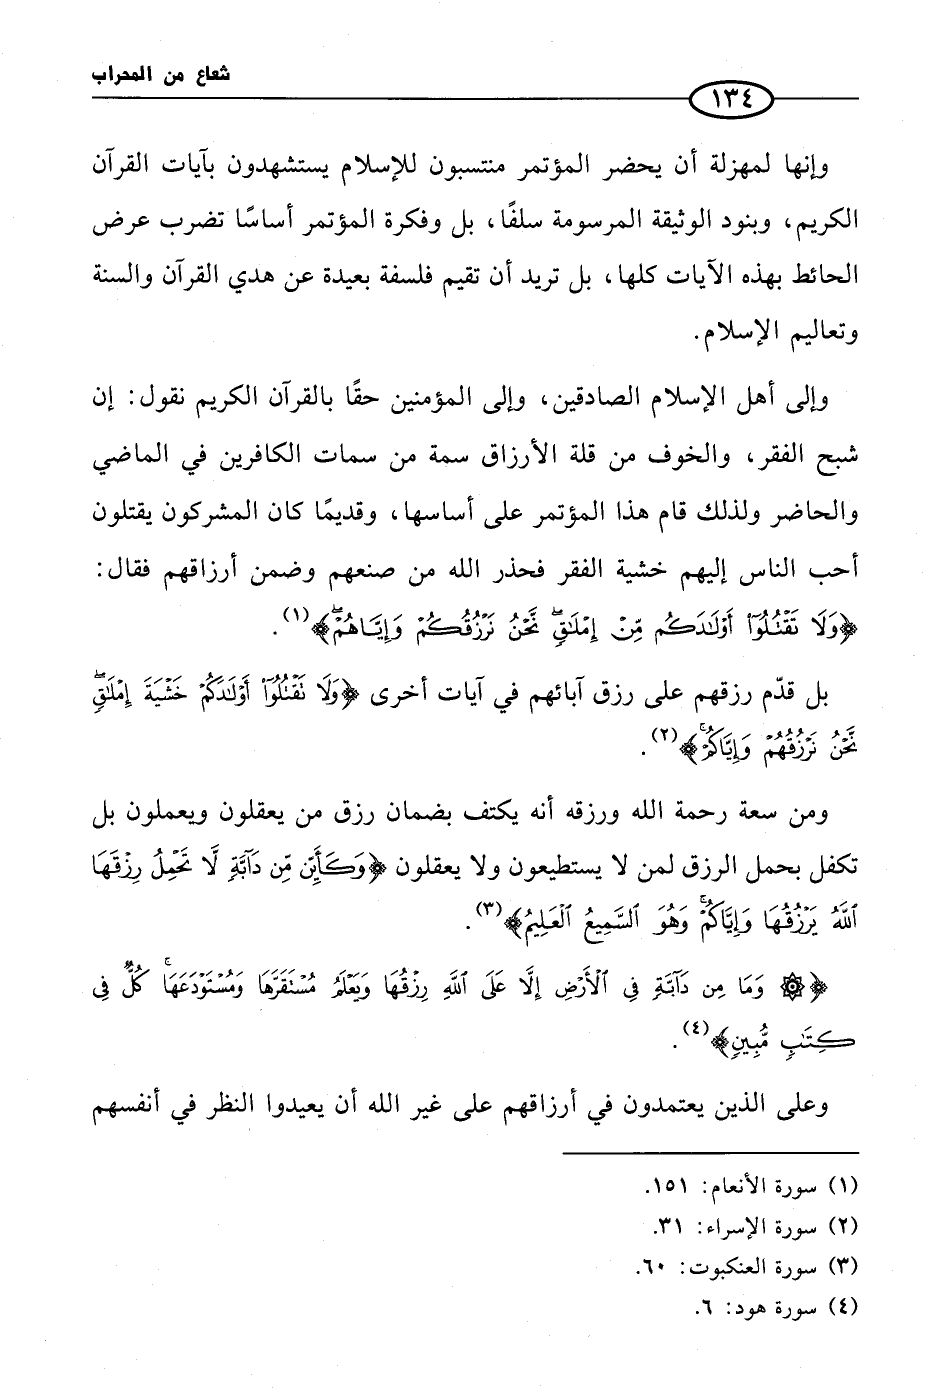 شعاع من المحراب
١٣٤
وإنها لمهزلة أن يحضر المؤتمر منتسبون للإسلام يستشهدون بآيات القرآن
الكريم، وبنود الوثيقة المرسومة سلفًا، بل وفكرة المؤتمر أساسًا تضرب عرض
الحائط بهذه الآيات كلها، بل تريد أن تقيم فلسفة بعيدة عن هدي القرآن والسنة
وتعاليم الإسلام.
وإلى أهل الإسلام الصادقين، وإلى المؤمنين حقًا بالقرآن الكريم نقول: إن
شبح الفقر، والخوف من قلة الأرزاق سمة من سمات الكافرين في الماضي
والحاضر ولذلك قام هذا المؤتمر على أساسها، وقديمًا كان المشركون يقتلون
أحب الناس إليهم خشية الفقر فحذر الله من صنعهم وضمن أرزاقهم فقال:
﴿وَلَا تَقْتُلُوٓا۟ أَوْلَـٰدَكُم مِّنْ إِمْلَـٰقٍ ۖ نَّحْنُ نَرْزُقُكُمْ وَإِيَّاهُمْ ۖ﴾(١).
بل قدّم رزقهم على رزق آبائهم في آيات أخرى ﴿وَلَا تَقْتُلُوٓا۟ أَوْلَـٰدَكُمْ خَشْيَةَ إِمْلَـٰقٍ ۖ
نَّحْنُ نَرْزُقُهُمْ وَإِيَّاكُمْ ۚ﴾(٢).
ومن سعة رحمة الله ورزقه أنه يكتف بضمان رزق من يعقلون ويعملون بل
تكفل بحمل الرزق لمن لا يستطيعون ولا يعقلون ﴿وَكَأَيِّن مِّن دَآبَّةٍ لَّا تَحْمِلُ رِزْقَهَا
ٱللَّهُ يَرْزُقُهَا وَإِيَّاكُمْ ۚ وَهُوَ ٱلسَّمِيعُ ٱلْعَلِيمُ﴾(٣).
﴿۞ وَمَا مِن دَآبَّةٍ فِى ٱلْأَرْضِ إِلَّا عَلَى ٱللَّهِ رِزْقُهَا وَيَعْلَمُ مُسْتَقَرَّهَا وَمُسْتَوْدَعَهَا ۚ كُلٌّ فِى
كِتَـٰبٍ مُّبِينٍ﴾(٤).
وعلى الذين يعتمدون في أرزاقهم على غير الله أن يعيدوا النظر في أنفسهم
(١) سورة الأنعام: ١٥١.
(٢) سورة الإسراء: ٣١.
(٣) سورة العنكبوت: ٦٠.
(٤) سورة هود: ٦.